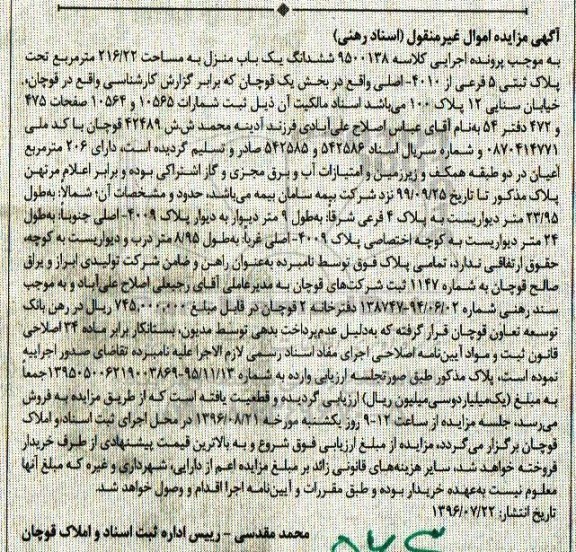 آگهی مزایده اموال غیرمنقول (اسناد رهنی)
به موجب پرونده اجرایی کلاسه ۹۵۰۰۱۳۸ ششدانگ یک باب منزل به مساحت ۲۱۶/۲۲ مترمربع تحت
پلاک ثبتی ۵ فرعی از ۴۰۱۰- اصلی واقع در بخش یک قوچان که برابر گزارش کارشناسی واقع در قوچان،
خیابان سنایی ۱۲ پلاک ۱۰۰ می‌باشد اسناد مالکیت آن ذیل ثبت شمارات ۱۰۵۶۵ و ۱۰۵۶۴ صفحات ۴۷۵
و ۴۷۲ دفتر ۵۴ به‌نام آقای عباس اصلاح علی‌آبادی فرزند آدینه محمد ش‌ش ۴۲۴۸۹ قوچان با کد ملی
۰۸۷۰۴۱۴۷۷۱ و شماره سریال اسناد ۵۴۲۵۸۶ و ۵۴۲۵۸۵ صادر و تسلیم گردیده است، دارای ۲۰۶ مترمربع
اعیان در دو طبقه همکف و زیرزمین و امتیازات آب و برق مجزی و گاز اشتراکی بوده و برابر اعلام مرتهن
پلاک مذکور تا تاریخ ۹۹/۰۹/۲۵ نزد شرکت بیمه سامان بیمه می‌باشد، حدود و مشخصات آن؛ شمالاً: به‌طول
۲۳/۹۵ متر دیواریست به پلاک ۴ فرعی شرقاً: به‌طول ۹ متر دیوار به دیوار پلاک ۴۰۰۹- اصلی جنوباً: به‌طول
۲۴ متر دیواریست به کوچه اختصاصی پلاک ۴۰۰۹- اصلی غرباً: به‌طول ۸/۹۵ متر درب و دیواریست به کوچه،
حقوق ارتفاقی ندارد، تمامی پلاک فوق توسط نامبرده به‌عنوان راهن و ضامن شرکت تولیدی ابزار و یراق
صالح قوچان به شماره ۱۱۴۷ ثبت شرکت‌های قوچان به مدیرعاملی آقای رجبعلی اصلاح علی‌آباد و به موجب
سند رهنی شماره ۹۴/۰۶/۰۲-۱۳۸۷۴۷ دفترخانه ۲ قوچان در قابل مبلغ ۷۴۵,۰۰۰,۰۰۰ ریال در رهن بانک
توسعه تعاون قوچان قرار گرفته که به‌دلیل عدم‌پرداخت بدهی توسط مدیون، بستانکار برابر ماده ۳۴ اصلاحی
قانون ثبت و مواد آیین‌نامه اصلاحی اجرای مفاد اسناد رسمی لازم الاجرا علیه نامبرده تقاضای صدور اجراییه
نموده است، پلاک مذکور طبق صورتجلسه ارزیابی وارده به شماره ۹۵/۱۱/۱۳-۱۳۹۵۰۵۰۰۶۲۱۹۰۰۳۸۶۹ جمعاً
به مبلغ (یک‌میلیاردوسی‌میلیون ریال) ارزیابی گردیده و قطعیت یافته است که از طریق مزایده به فروش
می‌رسد، جلسه مزایده از ساعت ۱۲-۹ روز یکشنبه مورخه ۱۳۹۶/۰۸/۲۱ در محل اجرای ثبت اسناد و املاک
قوچان برگزار می‌گردد، مزایده از مبلغ ارزیابی فوق شروع و به بالاترین قیمت پیشنهادی از طرف خریدار
فروخته خواهد شد، سایر هزینه‌های قانونی زائد بر مبلغ مزایده اعم از دارایی، شهرداری و غیره که مبلغ آنها
معلوم نیست به‌عهده خریدار بوده و طبق مقررات و آیین‌نامه اجرا اقدام و وصول خواهد شد.
تاریخ انتشار: ۱۳۹۶/۰۷/۲۲
محمد مقدسی - رییس اداره ثبت اسناد و املاک قوچان